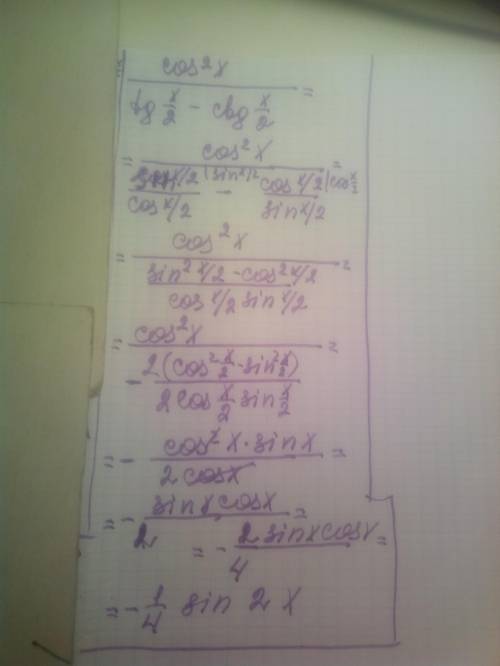 cos²x / (tg x/2 - ctg x/2) =
= cos²x / ((sin x/2 |sin x/2) / (cos x/2) - (cos x/2 |cos x/2) / (sin x/2)) =
= cos²x / ((sin² x/2 - cos² x/2) / (cos x/2 sin x/2)) =
= cos²x / (- 2(cos² x/2 - sin² x/2) / (2 cos x/2 sin x/2)) =
= - (cos²x · sin x) / (2 cos x) =
= - (sin x cos x) / 2 =
= - (2 sin x cos x) / 4 =
= - 1/4 sin 2x